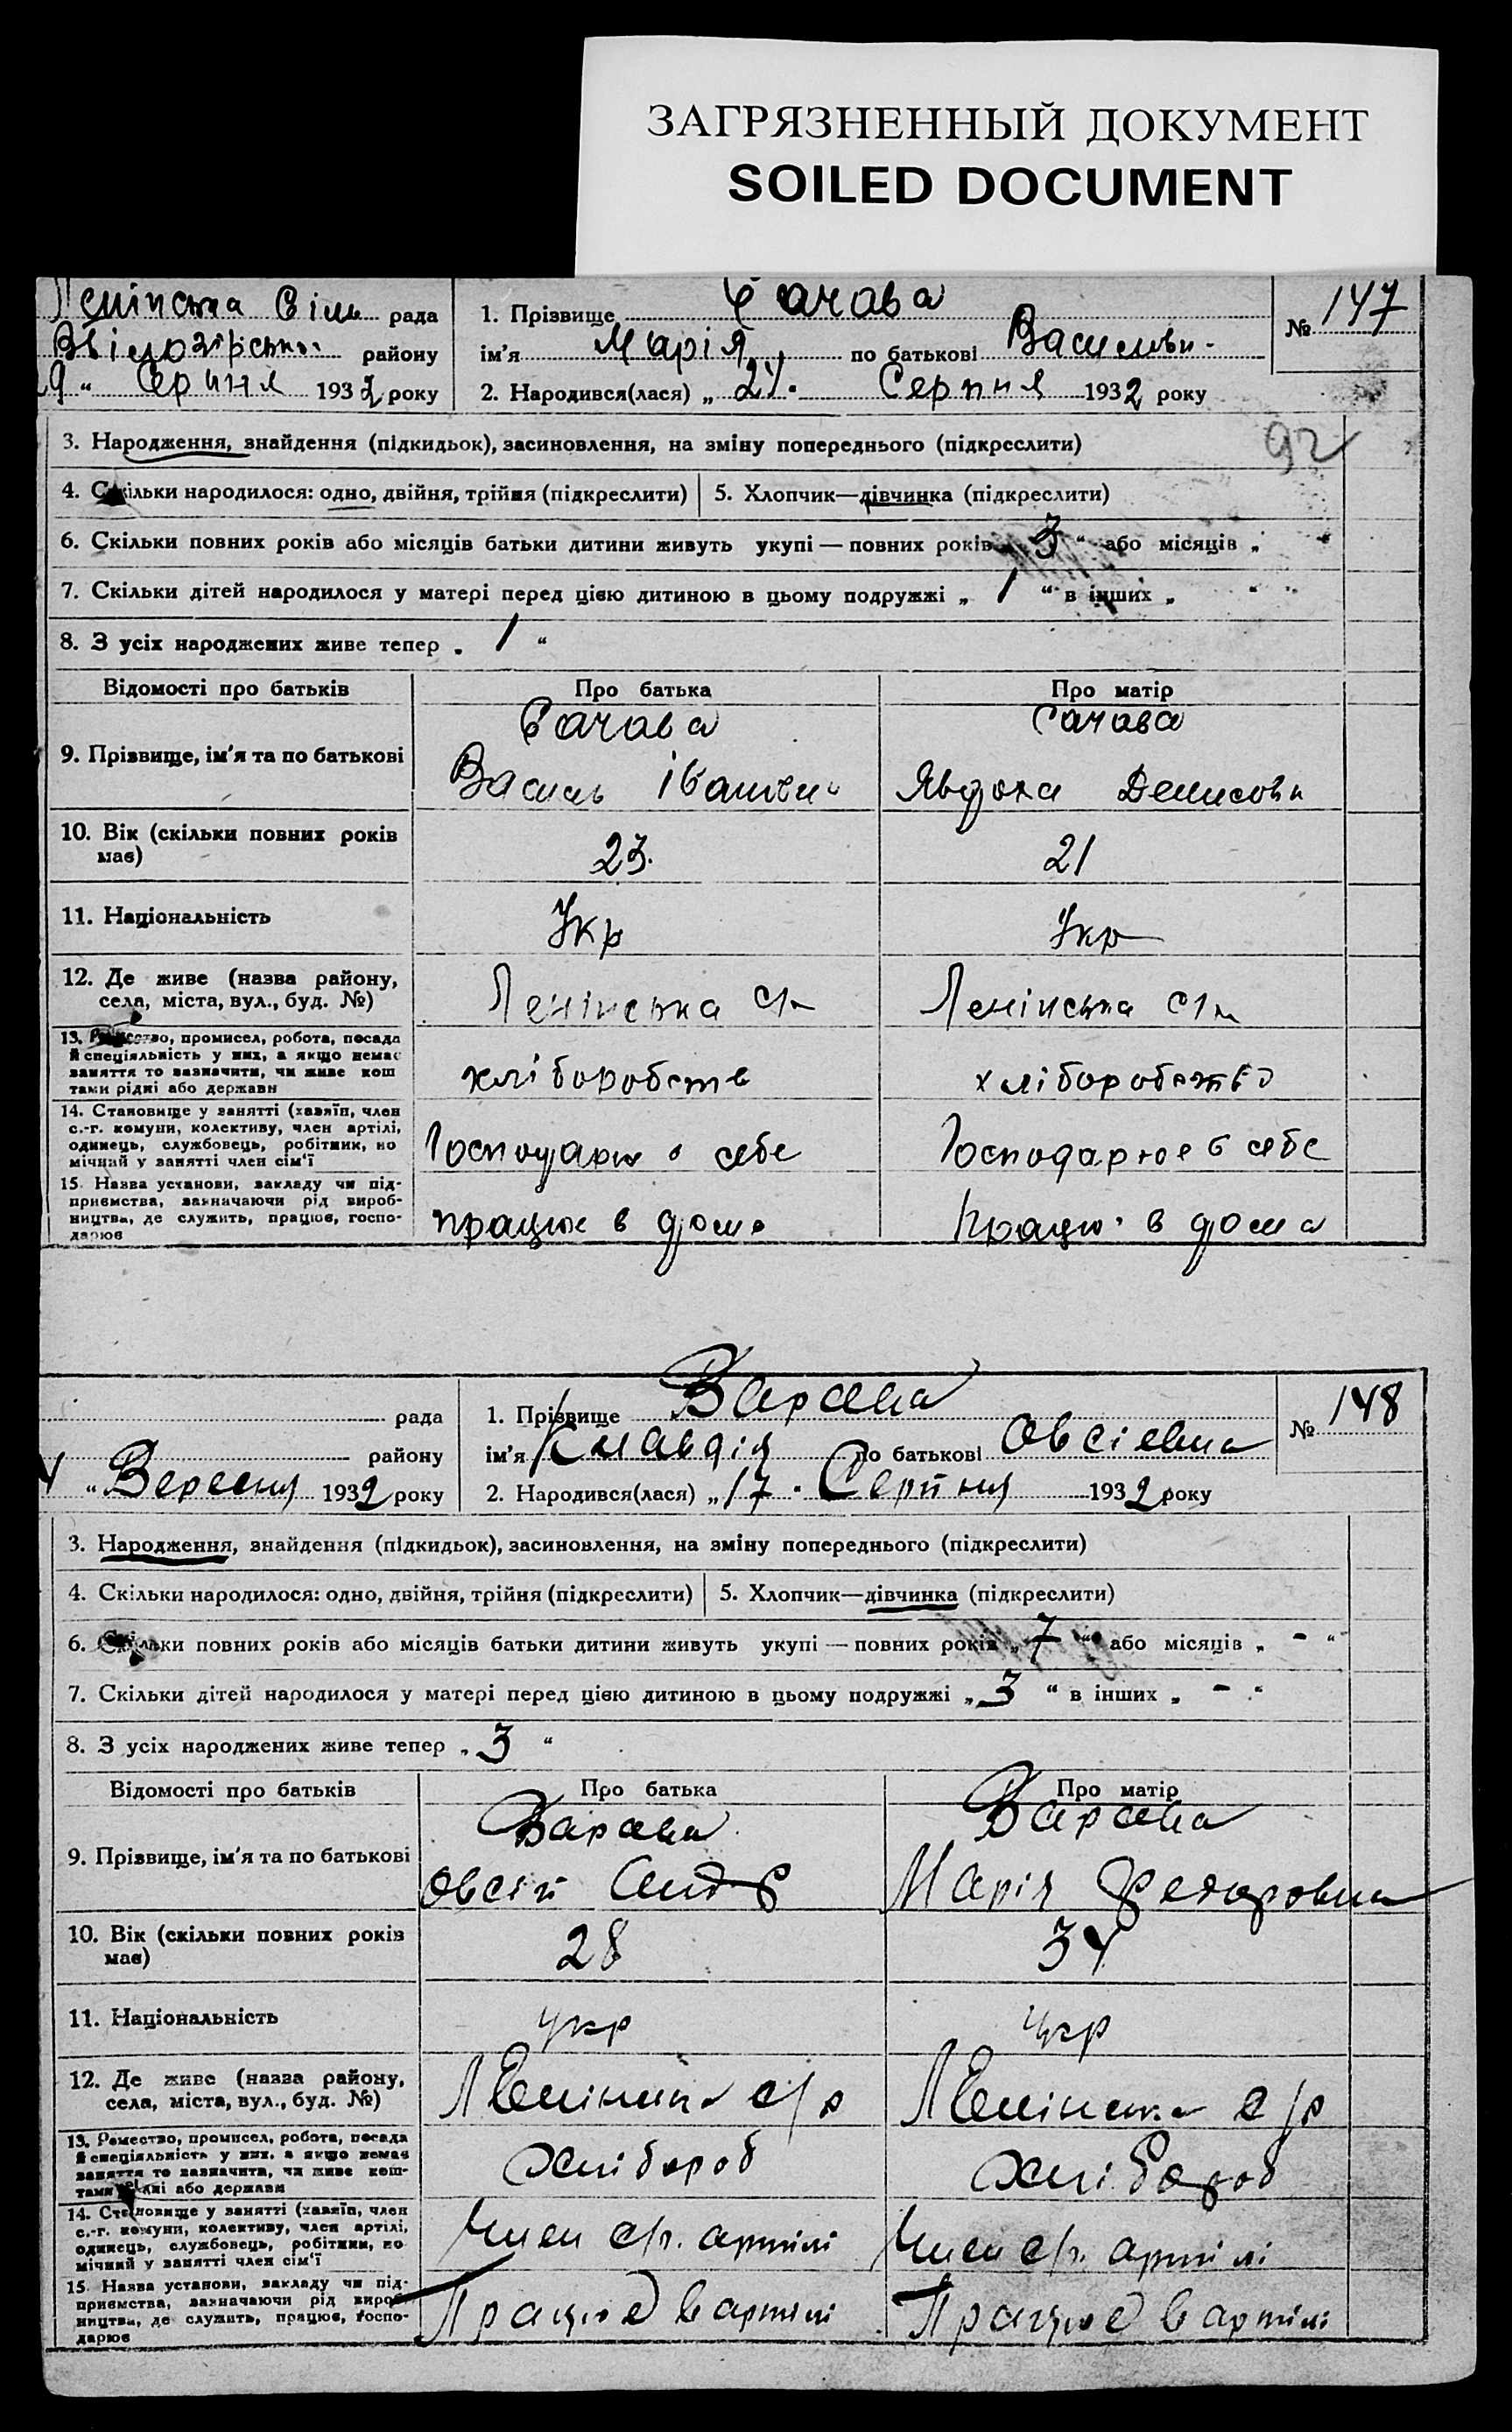 ЗАГРЯЗНЕННЫЙ ДОКУМЕНТ
SOILED DOCUMENT
Ленінська Сіль рада
району
29 " Серпня 1932 року
1. Прізвище Сачава
ім'я Марія по батькові Васильвн.
№ 147
2. Народився(лася) „ 24. Серпня 1932 року
3. Народження, знайдення (підкидьок), засиновлення, на зміну попереднього (підкреслити)
92
4. Скільки народилося: одно, двійня, трійня (підкреслити) 5. Хлопчик—дівчинка (підкреслити)
6. Скільки повних років або місяців батьки дитини живуть укупі — повних років „ 3 “ або місяців „ “
7. Скільки дітей народилося у матері перед цією дитиною в цьому подружжі „ 1 “ в інших „ “
8. З усіх народжених живе тепер „ 1 “
Відомості про батьків Про батька Про матір
9. Прізвище, ім'я та по батькові
Сачава Сачава
Василь Явдоха Денисовн
10. Вік (скільки повних років має) 23. 21
11. Національність Укр Укр
12. Де живе (назва району, села, міста, вул., буд. №)
Ленінська Ленінська
13. Ремество, промисел, робота, посада
й спеціяльність у них, а якщо немає
заняття то вазначити, чи живе кош
тами рідні або держави
хліборобств хліборобство
14. Становище у занятті (хазяїн, член
с.-г. комуни, колективу, член артілі,
одинець, службовець, робітник, по
мічний у занятті член сім'ї
Господарює в себе Господарює в себе
15. Назва установи, закладу чи під-
приємства, зазначаючи рід вироб-
ництва, де служить, працює, госпо-
дарює
працює в дома Працює в дома
рада
району
4 " Вересня 1932 року
1. Прізвище Варава
ім'я Клавдія по батькові Овсіевна
№ 148
2. Народився(лася) „ 17. Серпня 1932 року
3. Народження, знайдення (підкидьок), засиновлення, на зміну попереднього (підкреслити)
4. Скільки народилося: одно, двійня, трійня (підкреслити) 5. Хлопчик—дівчинка (підкреслити)
6. Скільки повних років або місяців батьки дитини живуть укупі — повних років „ 7 “ або місяців „ - “
7. Скільки дітей народилося у матері перед цією дитиною в цьому подружжі „ 3 “ в інших „ - “
8. З усіх народжених живе тепер „ 3 “
Відомості про батьків Про батька Про матір
9. Прізвище, ім'я та по батькові
Варава Варава
Овсій Марія Федоровна
10. Вік (скільки повних років має) 28 34
11. Національність укр укр
12. Де живе (назва району, села, міста, вул., буд. №)
Ленінська с/р Ленінська с/р
13. Ремество, промисел, робота, посада
й спеціяльність у них, а якщо немає
заняття то вазначити, чи живе кош-
тами рідні або держави
Хлібороб Хлібороб
14. Становище у занятті (хазяїн, член
с.-г. комуни, колективу, член артілі,
одинець, службовець, робітник, по
мічний у занятті член сім'ї
Член с/г. артілі Член с/г. артілі
15. Назва установи, закладу чи під-
приємства, зазначаючи рід вироб-
ництва, де служить, працює, госпо-
дарює
Працює в артілі Працює в артілі